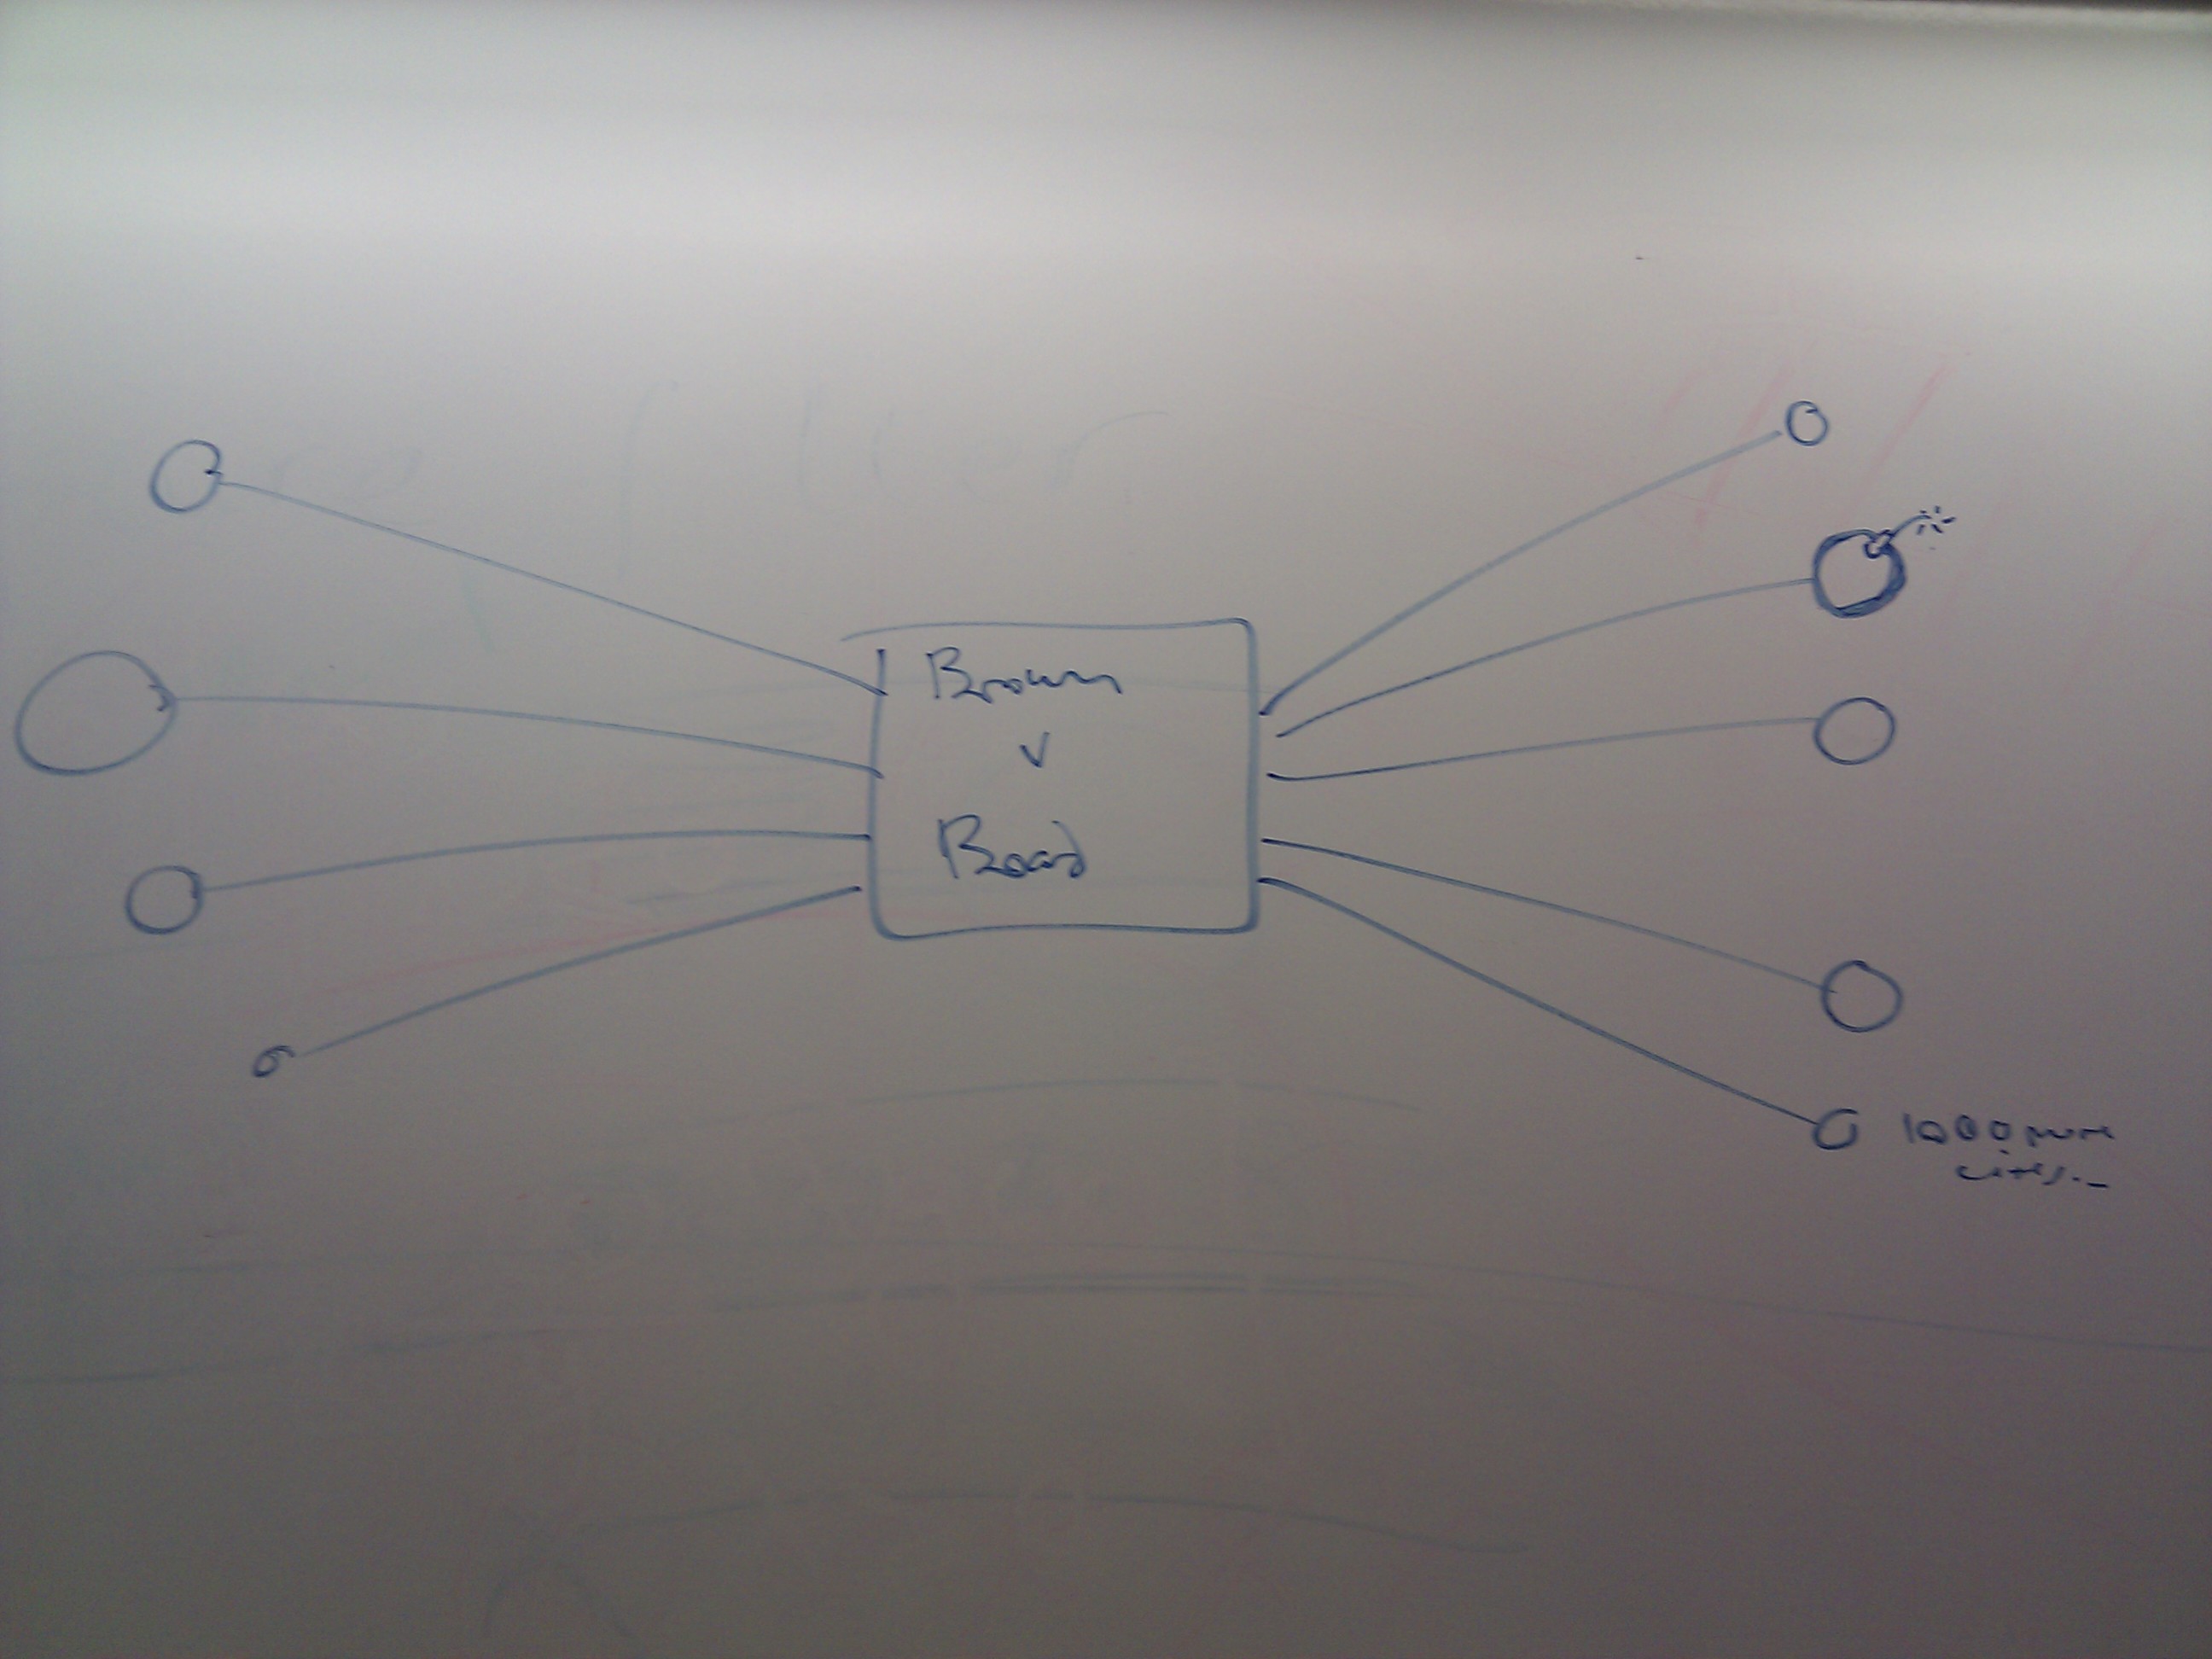 Brown
v
Board
1000 more
cites...